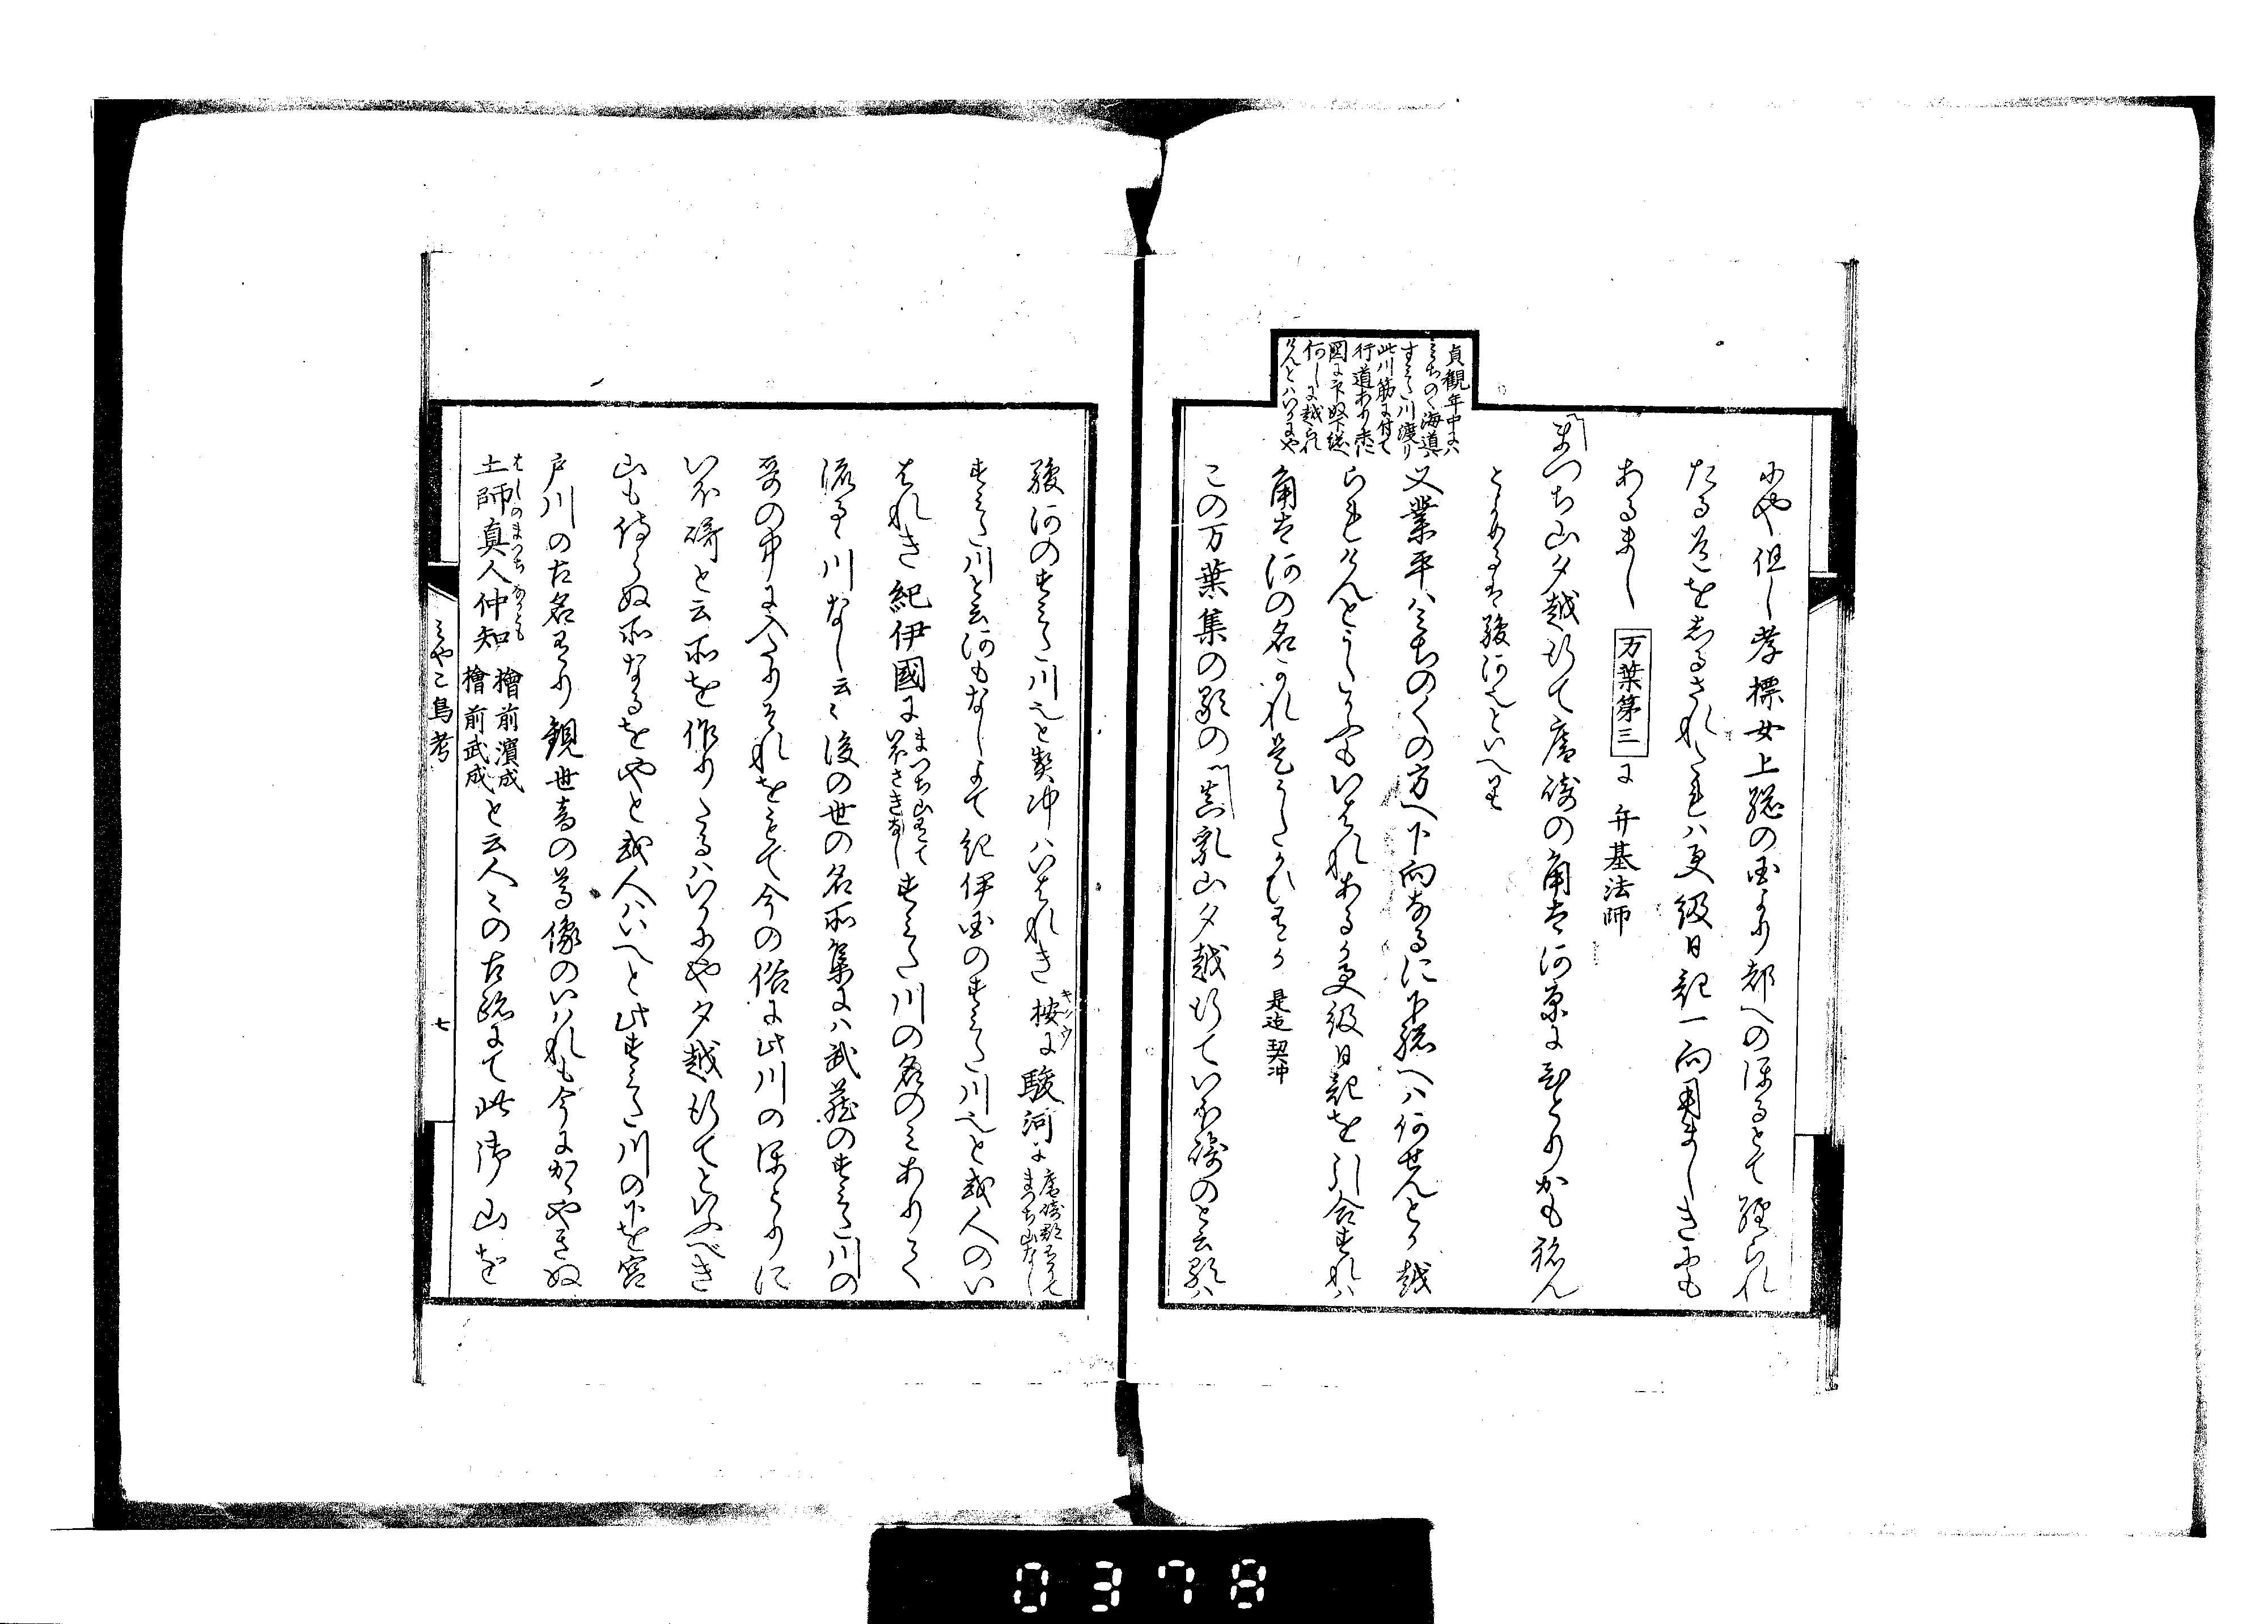 貞観年中にハ
みちのく海道ハ
すみた川渡り
此川筋に付て
行道あり
何しに越られ
けんとハいかにや
にや但し孝標女上総の国より都へのほるとて経られ
たる道をしるされたれハ更級日記一向用ましきにも
あるまし 万葉第三に弁基法師
まつち山夕越行て庵崎の角太河原にひとりかも祢ん
とよめるは駿河也といへり
又業平ハみちのくの方へ下向なるに下総へハ何せんとか越
られけんとうたかふもいはれある歟更級日記を引合すれハ
角太河の名かれ是うたかひ有か 是迄契沖
この万葉集の歌の真乳山夕越行ていほ崎のと云歌ハ
駿河のすみた川也と契沖ハいはれき 按に駿河に 庵崎郡有て まつち山なし
すみた川と云河もなしよて紀伊国のすみた川也と或人のい
はれき紀伊國に まつち山有て いほさきなし すみた川の名のみありて
流るゝ川なし云々後の世の名所集にハ武蔵のすみた川の
哥の中に入たりそれをもて今の俗に此川のほとりに
いほ崎と云所を作りたるハいかにや夕越行てといふべき
山も侍らぬ所なるをやと或人ハいへと此すみた川の下を宮
戸川の古名有り観世音の尊像のいハれも今にかゝやきぬ
土師真人仲知 檜前濱成 檜前武成 と云人々の古跡にて此御山を
はしのまつちなかとも
みやこ鳥考
七
0378